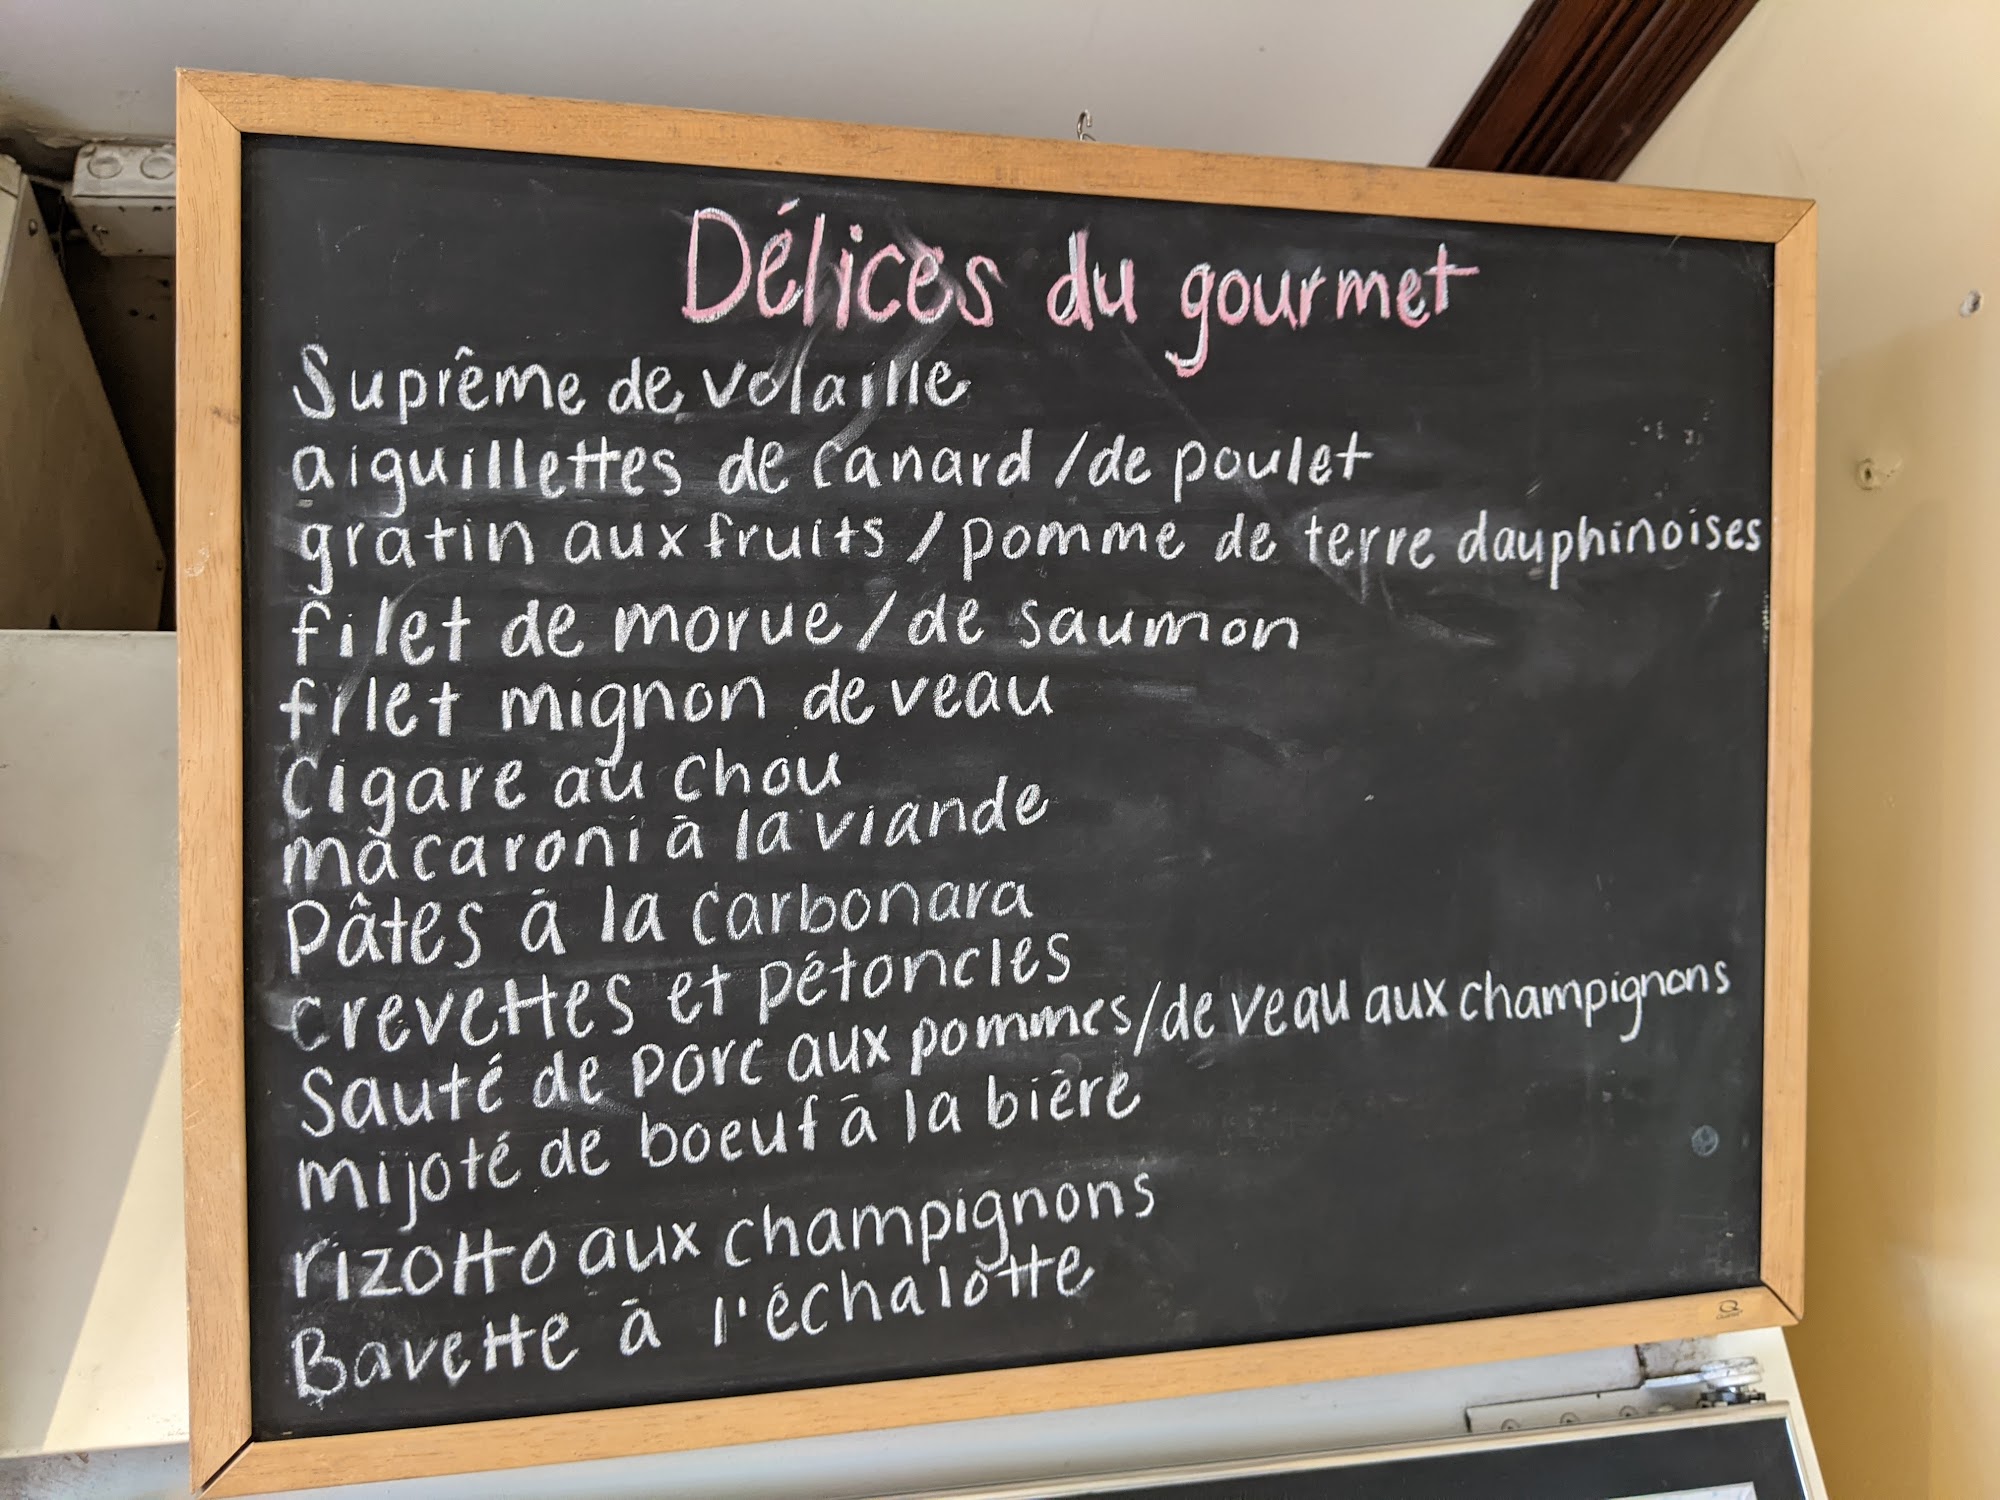 Délices du gourmet
Suprême de volaille
aiguillettes de canard / de poulet
gratin aux fruits / pomme de terre dauphinoises
filet de morue / de saumon
filet mignon de veau
Cigare au chou
macaroni à la viande
Pâtes à la carbonara
crevettes et pétoncles
Sauté de porc aux pommes / de veau aux champignons
mijoté de boeuf à la bière
rizotto aux champignons
Bavette à l'échalotte